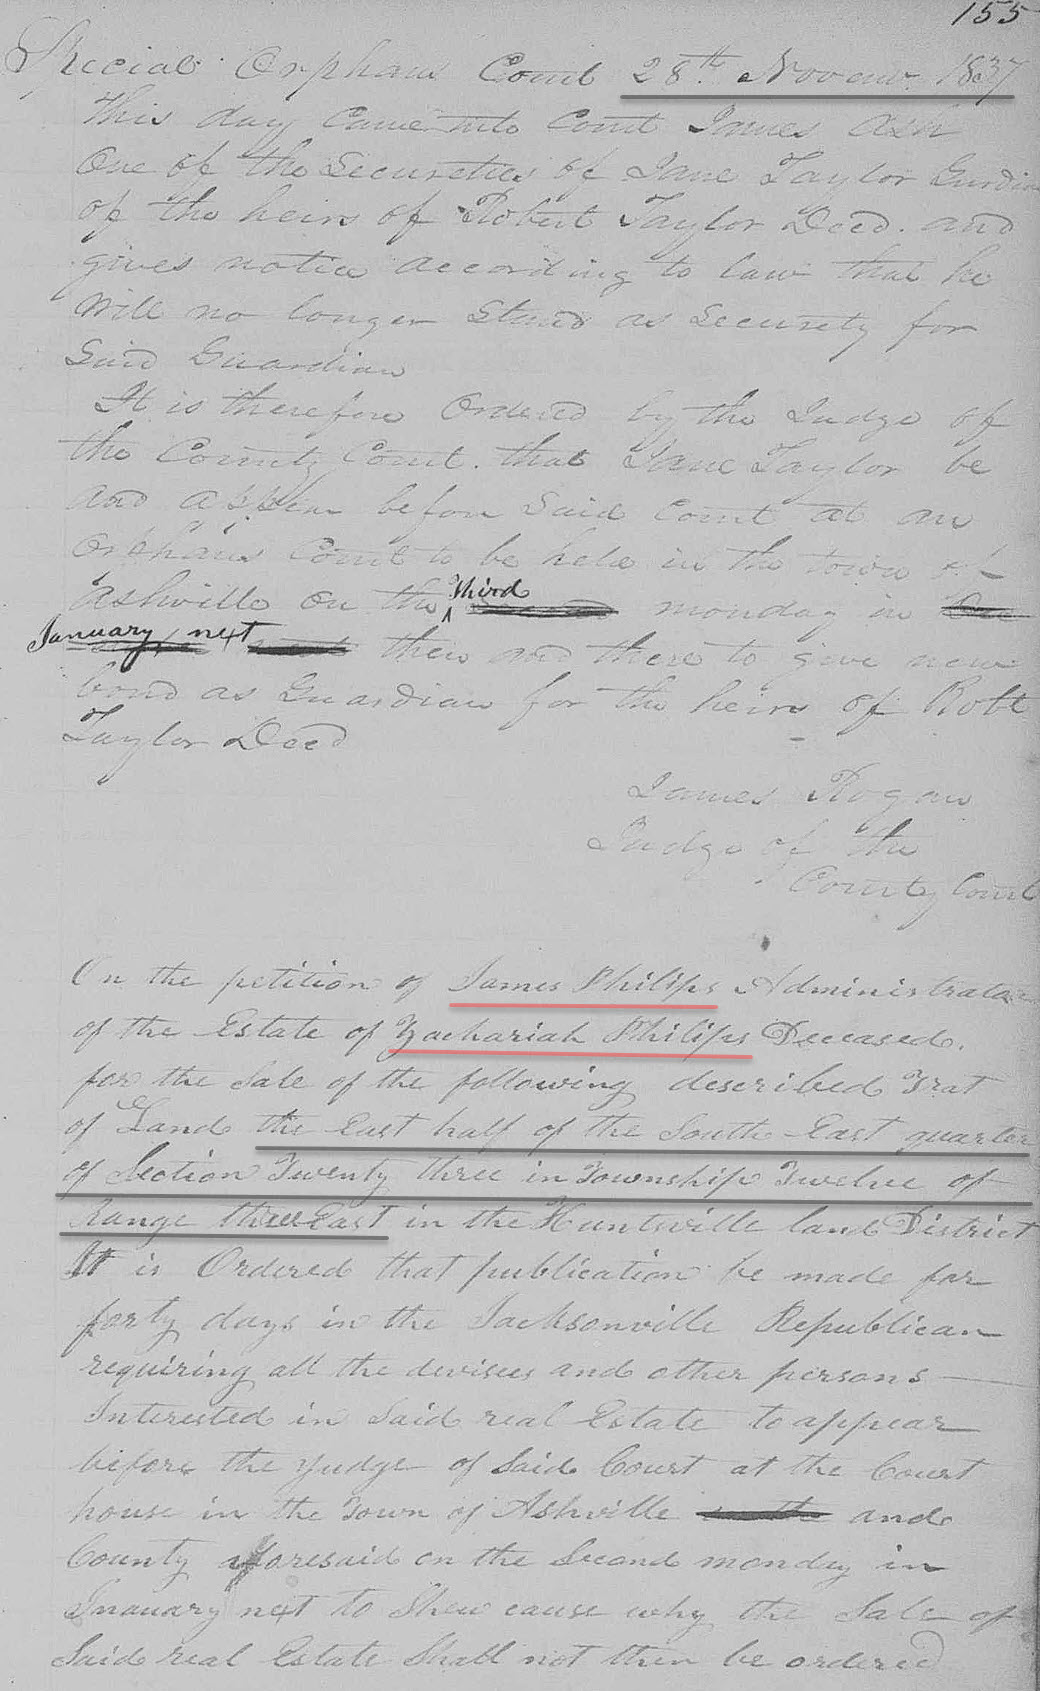 155
Special Orphans Court 28th Novem 1837
This day Came into Court James Ash
One of the Secureties of Jane Taylor Gurdian
of the heirs of Robert Taylor Decd. and
gives notice according to law that he
Will no longer Stand as Securety for
Said Guardian
It is therefore Ordered by the Judge of
the County Court. that Jane Taylor be
and appear before Said Court at an
Orphans Court to be held in the town of
Ashville on the Third monday in
January next then and there to give new
bond as Guardian for the heirs of Robt
Taylor Decd
James Rogan
Judge of the
County Court
On the petition of James Philips Administrator
of the Estate of Zachariah Philips Deceased.
for the Sale of the following described Trat
of Land the East half of the South East quarter
of Section Twenty three in Township Twelve of
Range three East in the Huntsville land District
It is Ordered that publication be made for
forty days in the Jacksonville Republican
requiring all the devisees and other persons
Interested in Said real Estate to appear
before the Judge of Said Court at the Court
house in the Town of Ashville and
County aforesaid on the Second monday in
Jnauary next to Shew cause why the Sale of
Said real Estate Shall not then be ordered